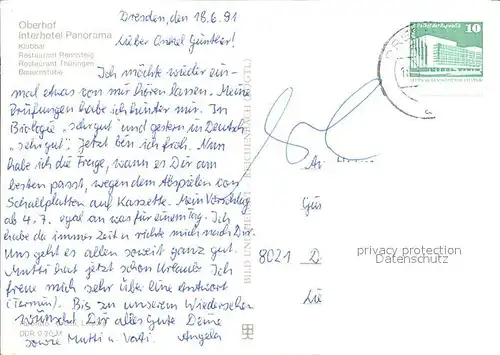 Oberhof
Interhotel Panorama
Klubbar
Restaurant Rennsteig
Restaurant Thüringen
Bauernstube
Dresden, den 18.6.91
Lieber Onkel Günther!
Ich möchte wieder ein-
mal etwas von mir hören lassen. Meine
Prüfungen habe ich hinter mir. In
Biologie „sehr gut" und gestern in Deutsch
„sehr gut". Jetzt bin ich froh. Nun
habe ich die Frage, wann es Dir am
besten passt, wegen dem Abspielen von
Schallplatten auf Kassette. Mein Vorschlag
ab 4.7. egal an was für einem Tag. Ich
habe da immer Zeit u. richte mich nach Dir.
Uns geht es allen soweit ganz gut.
Mutti hat jetzt schon Urlaub. Ich
freue mich sehr über eine Antwort
(Termin). Bis zu unserem Wiedersehen
wünscht Dir alles Gute Deine
sowie Mutti u. Vati. Angela
BILD UND HEIMAT REICHENBACH (VOGTL)
10
Gün
8021 D
privacy protection
Datenschutz